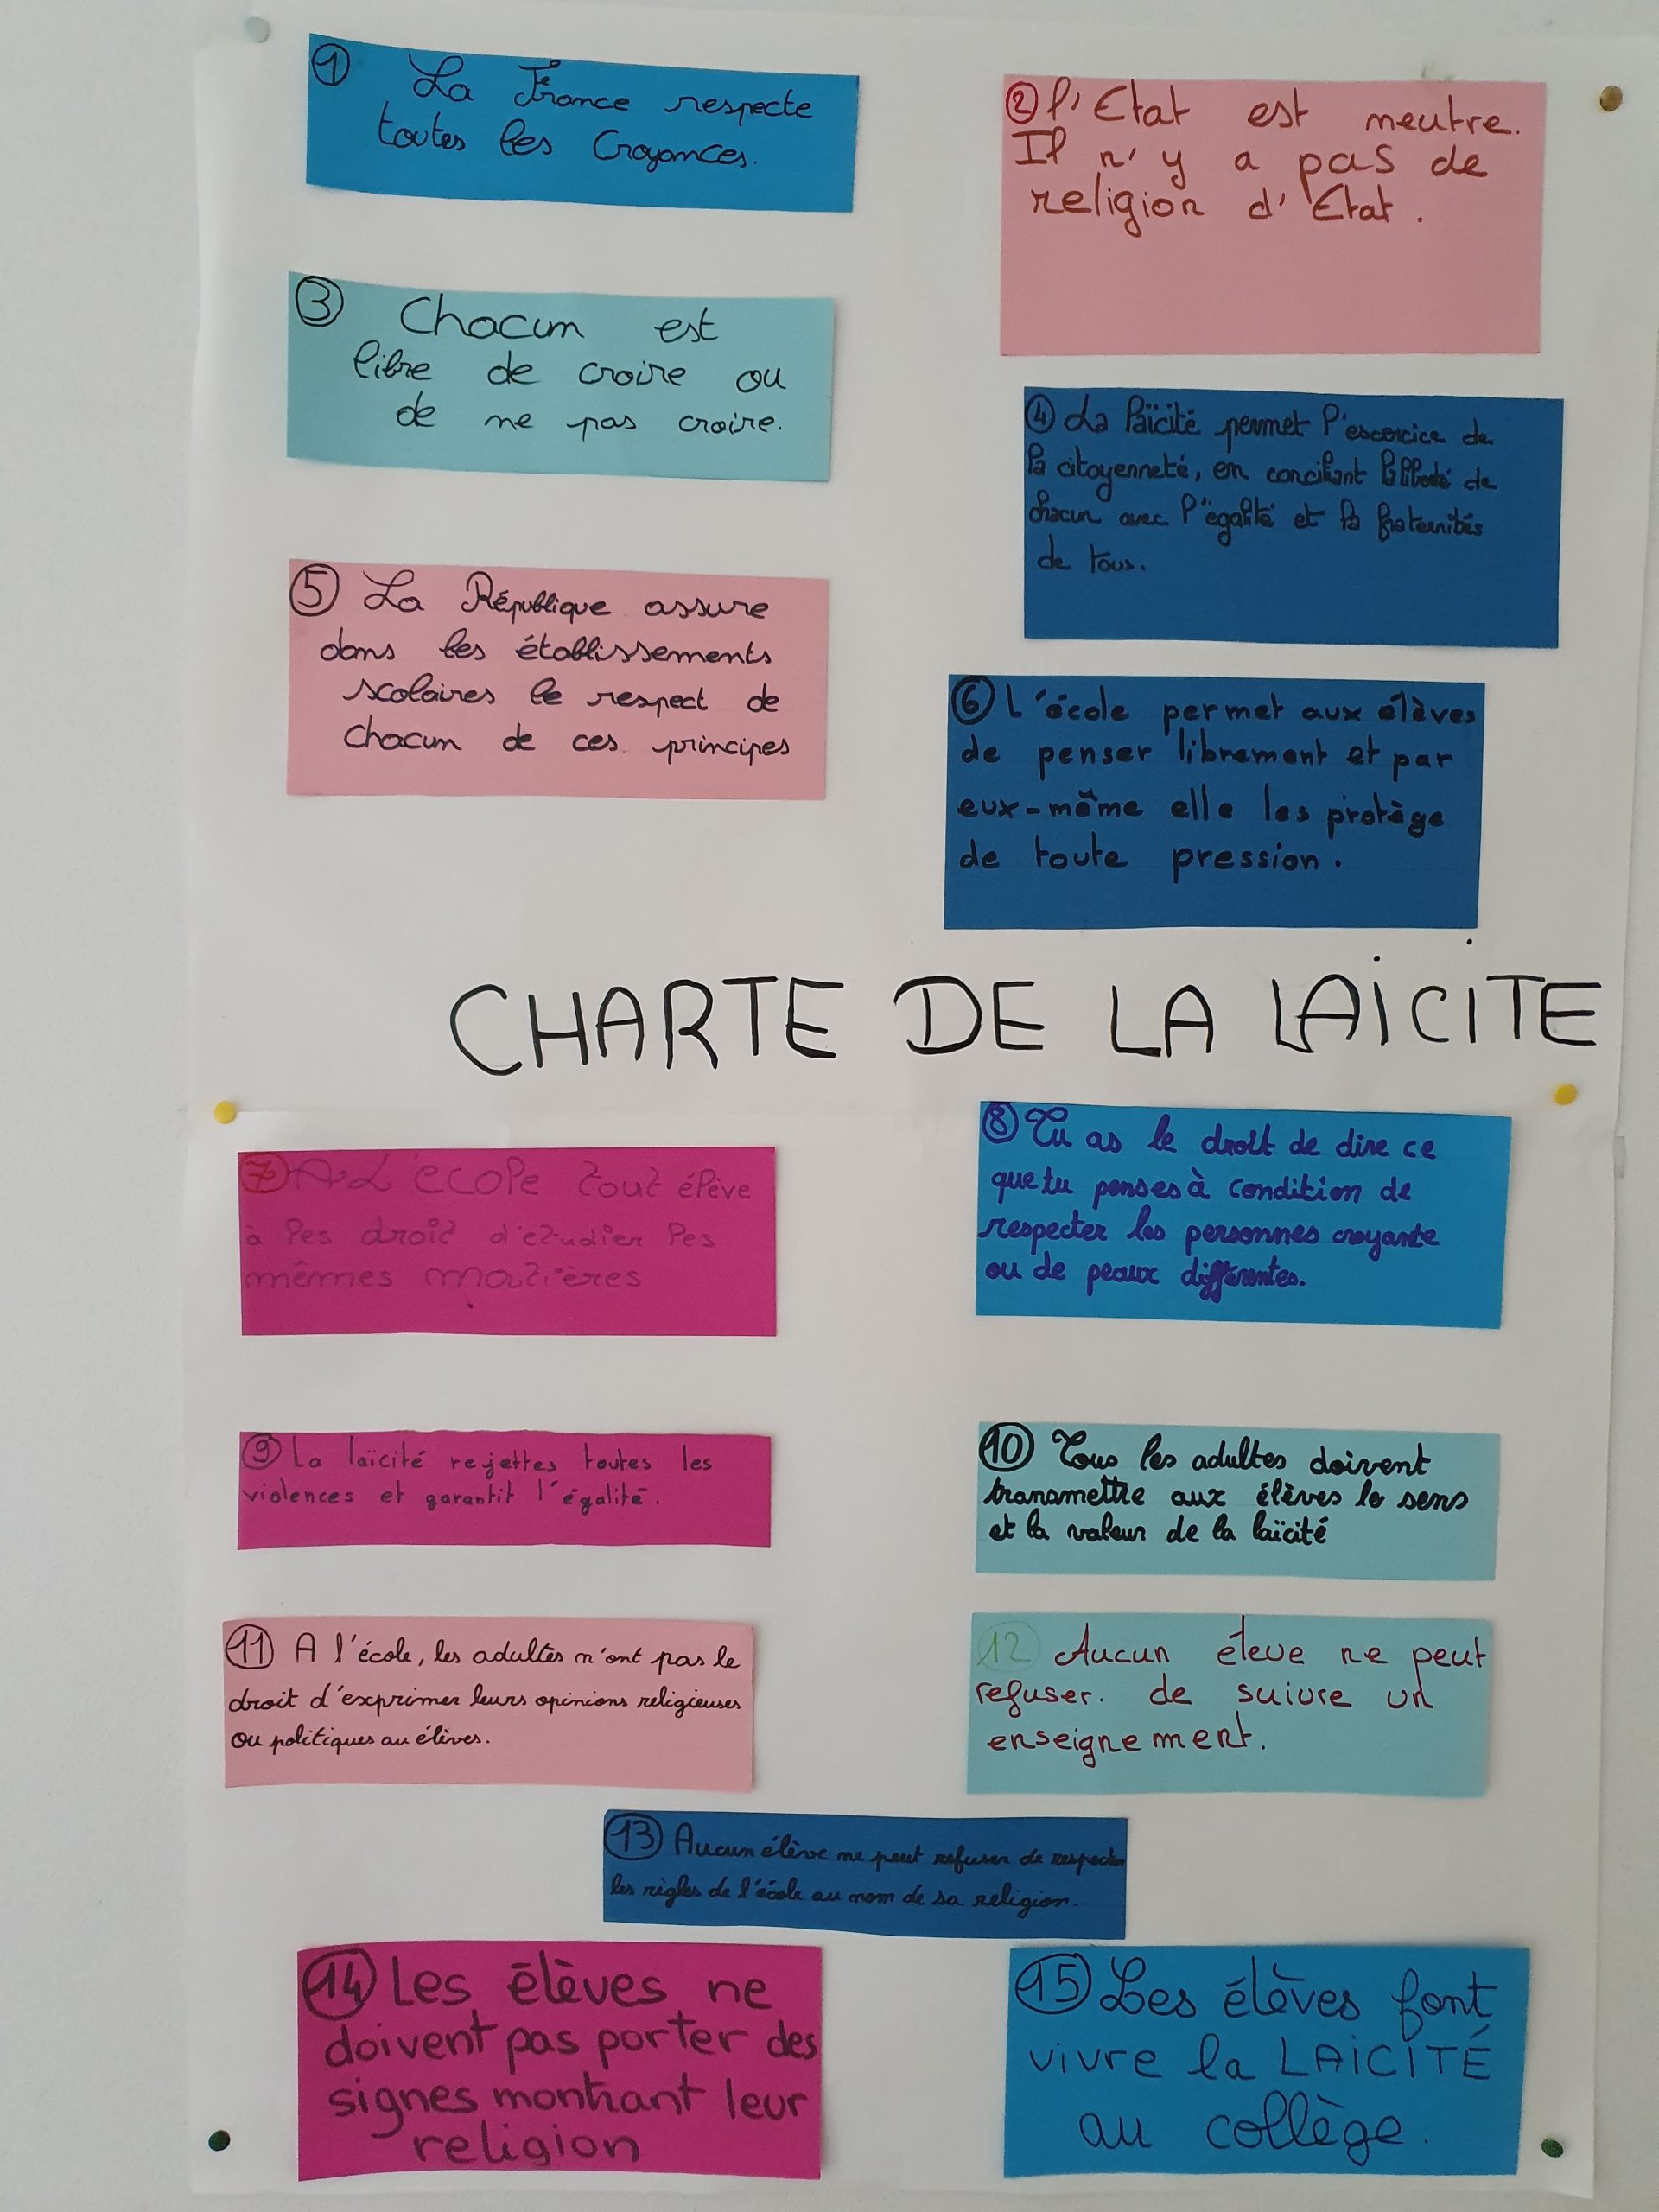 ① La France respecte
toutes les Croyances.
② l'Etat est neutre.
Il n'y a pas de
religion d'Etat.
③ Chacun est
libre de croire ou
de ne pas croire.
④ La laïcité permet l'escercice de
la citoyenneté, en conciliant la liberté de
chacun avec l'égalité et la fraternités
de tous.
⑤ La République assure
dans les établissements
scolaires le respect de
chacun de ces principes
⑥ L'école permet aux élèves
de penser librement et par
eux-même elle les protège
de toute pression.
CHARTE DE LA LAÏCITE
⑦ A L'ecole tout élève
à les droit d'etudier les
mêmes matières
⑧ Tu as le droit de dire ce
que tu penses à condition de
respecter les personnes croyante
ou de peaux différentes.
⑨ La laïcité rejettes toutes les
violences et garantit l'égalité.
⑩ Tous les adultes doivent
transmettre aux élèves le sens
et la valeur de la laïcité
⑪ A l'école, les adultes n'ont pas le
droit d'exprimer leurs opinions religieuses
ou politiques au élèves.
⑫ Aucun éleve ne peut
refuser. de suivre un
enseignement.
⑬ Aucun élève ne peut refuser de respecter
les règles de l'école au nom de sa religion.
⑭ Les élèves ne
doivent pas porter des
signes montrant leur
religion
⑮ Les élèves font
vivre la LAICITÉ
au collège.